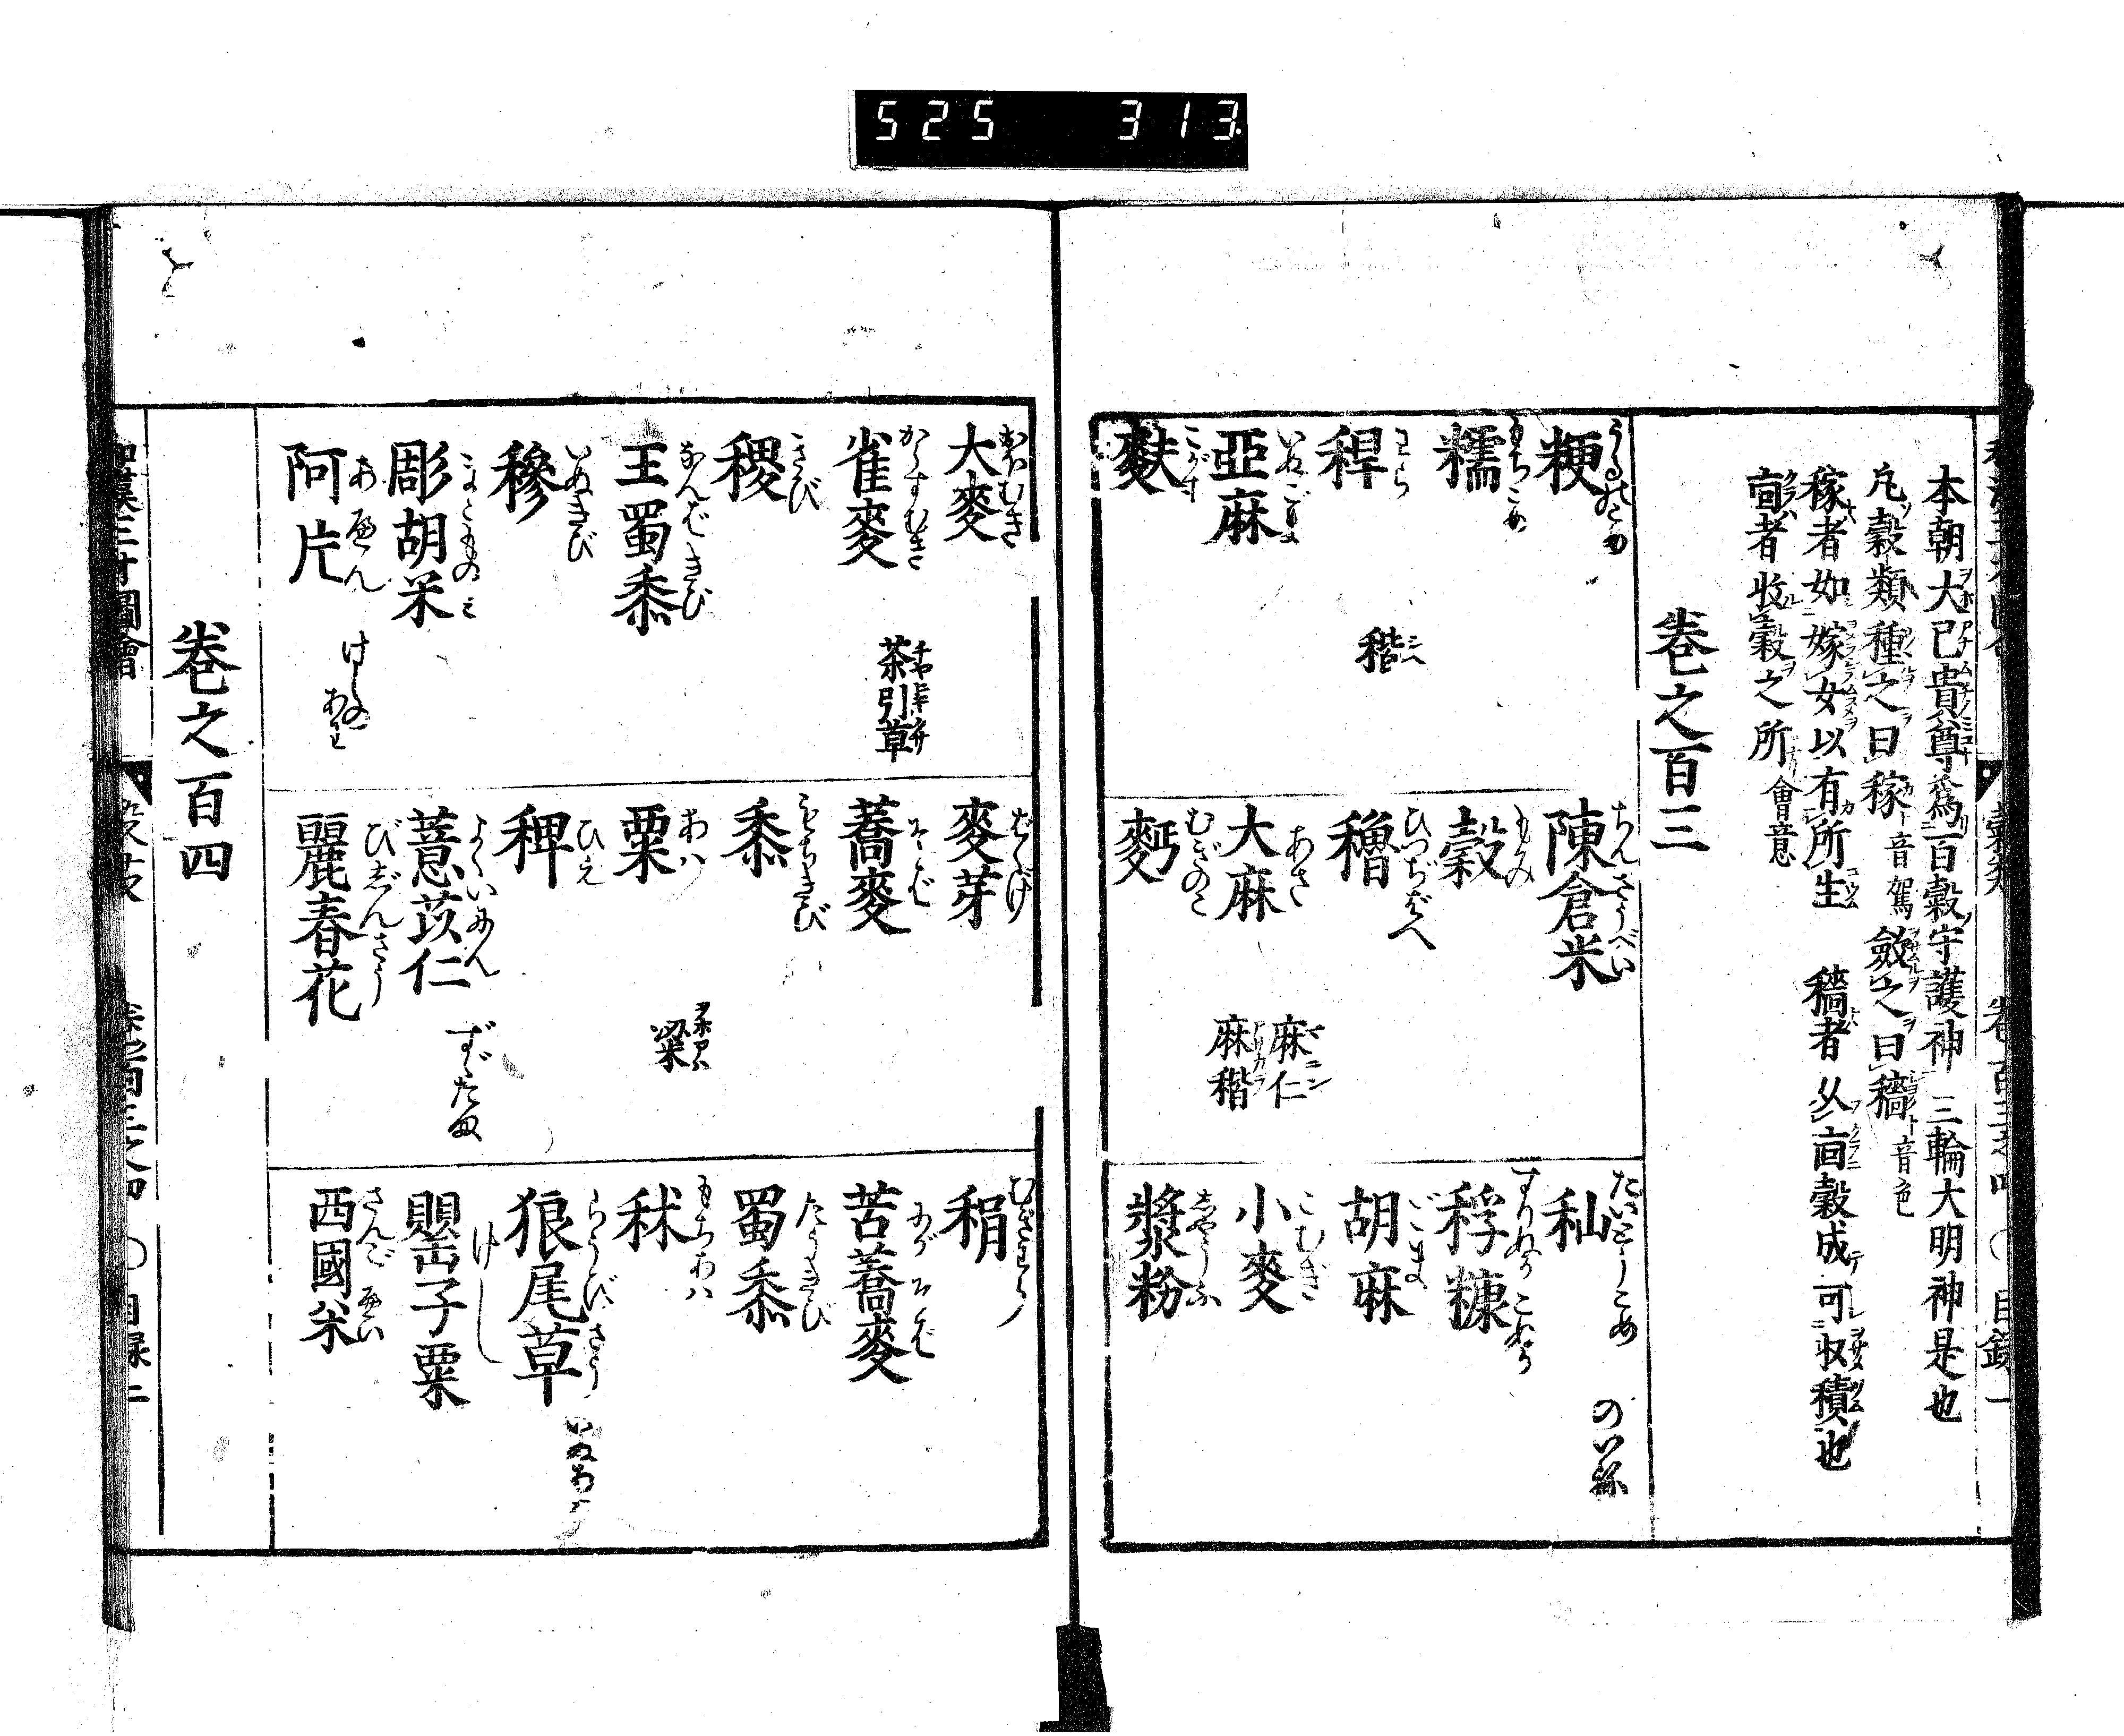 525 313
本朝大已貴尊爲百穀守護神三輪大明神是也
凡穀類種之曰稼音駕斂之曰穡音色
稼者如嫁女以有所生 穡者从㐭穀成可収積也
㐭者收穀之所會意
卷之百三
粳 うるのこめ
陳倉米 ちんさうべい
秈 たいたうこめ のいね
糯 もちこめ
穀 もみ
稃糠 すりぬか こぬか
稈 わら
稭 シベ
穭 ひつぢばへ
胡麻 ごま
亞麻 いぬごま
大麻 あさ
麻仁 マニン
麻稭 アサカラ
小麥 こむぎ
麩 こがす
麪 むぎのこ
漿粉 しやうふ
大麥 おほむぎ
麥芽
稍 むぎわら
雀麥 からすむぎ
茶引草 チヤヒキクサ
蕎麥 そば
苦蕎麥 にがそば
稷 きび
黍 もちきび
蜀黍 たうきび
玉蜀黍 なんばんきび
粟 あは
粱 ヲホアハ
秫 もちあは
穇 いぬきび
稗 ひえ
狼尾草 らうびさう いぬあは
彫胡米 まこものみ
薏苡仁 よくいにん ずゞだま
罌子粟 けし
阿片 あへん けしのあわ
麗春花 びじんさう
西國米 さんごべい
卷之百四
和漢三才圖會
目録 二